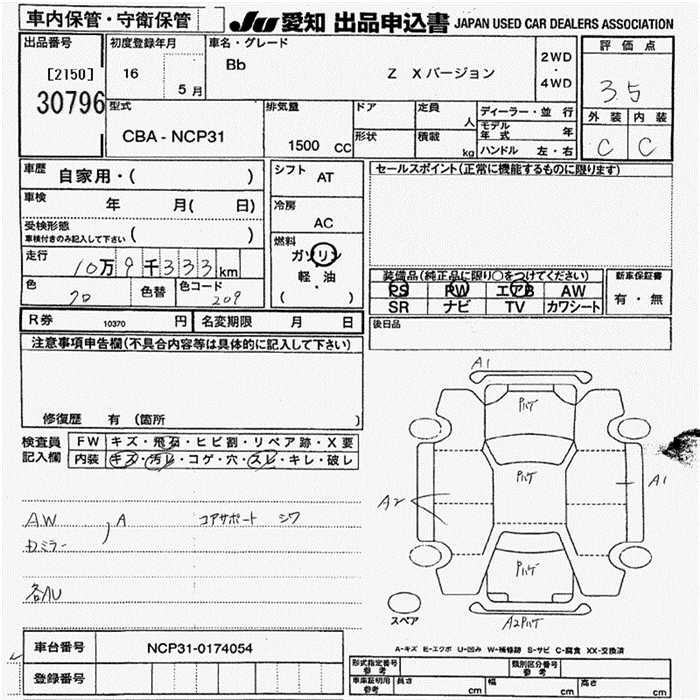 車内保管・守衛保管
JU 愛知 出品申込書 JAPAN USED CAR DEALERS ASSOCIATION
出品番号
[2150]
30796
初度登録年月
16
5 月
車名・グレード
Bb
Z Xバージョン
2WD
・
4WD
評価点
3.5
外装 内装
C C
型式
CBA - NCP31
排気量
1500 CC
ドア
形状
定員
人
積載
kg
ディーラー・並行
モデル年式 年
ハンドル 左・右
車歴
自家用・( )
車検
年 月( 日)
受検形態
車検付きのみ記入して下さい ( )
走行
10万9千333km
色
クロ
色替
色コード
209
シフト
AT
冷房
AC
燃料
ガソリン
・
軽油
( )
セールスポイント(正常に機能するものに限ります)
装備品(純正品に限り○をつけてください)
PS PW エアB AW
SR ナビ TV カワシート
新車保証書
有・無
後日品
R券 10370 円
名変期限 月 日
注意事項申告欄(不具合内容等は具体的に記入して下さい)
修復歴 有 (箇所 )
検査員
記入欄
FW キズ・飛石・ヒビ割・リペア跡・X要
内装 キズ・汚レ・コゲ・穴・スレ・キレ・破レ
AW
ドミラー
, A
コアサポート シワ
各AU
A1
Pハゲ
Pハゲ
A2
A1
Pハゲ
A2Pハゲ
スペア
車台番号 NCP31-0174054
登録番号
A-キズ E-エクボ U-凹み W-補修跡 S-サビ C-腐食 XX-交換済
形式指定番号
参考
類別区分番号
参考
車庫証明用
参考
長さ cm
幅 cm
高さ cm